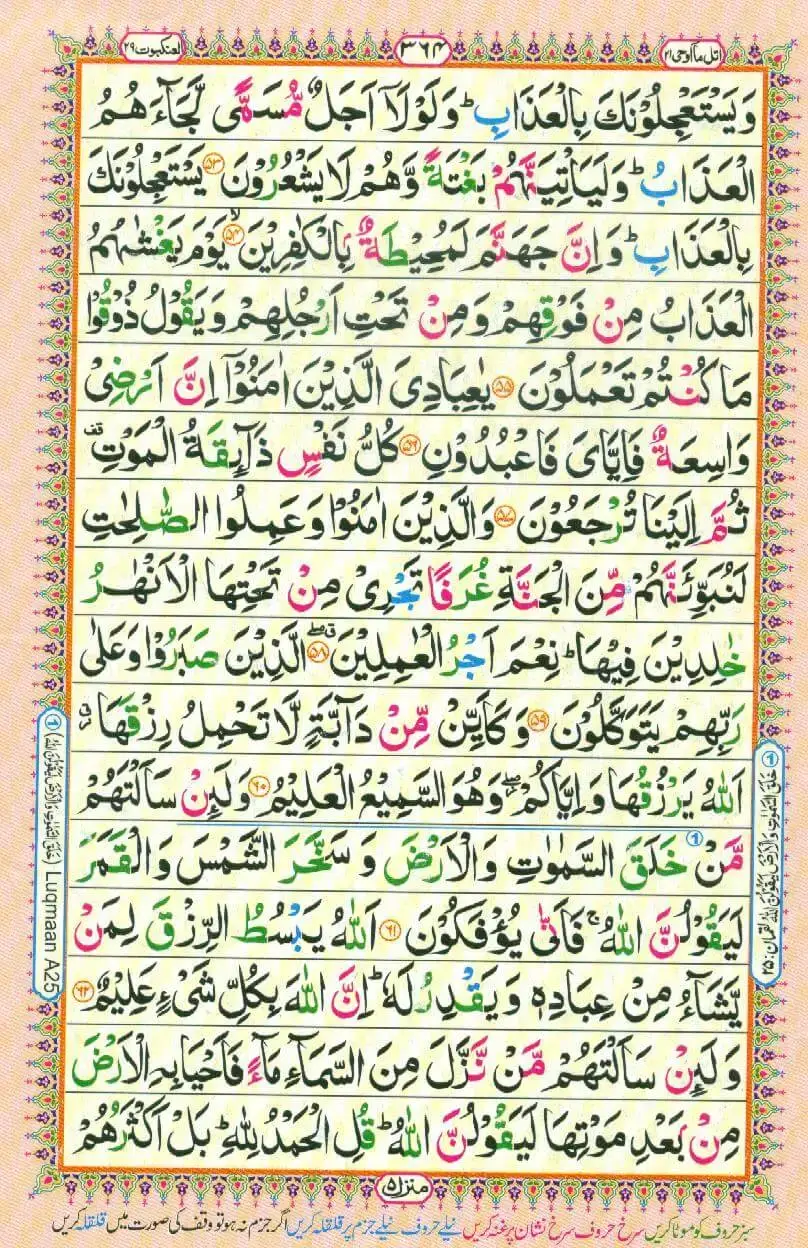 اتل ما اوحی ۲۱
۳۶۴
العنکبوت ۲۹
وَیَسْتَعْجِلُوْنَكَ بِالْعَذَابِ ؕ وَلَوْلَاۤ اَجَلٌ مُّسَمًّی لَّجَآءَهُمُ
الْعَذَابُ ؕ وَلَیَاْتِیَنَّهُمْ بَغْتَةً وَّهُمْ لَا یَشْعُرُوْنَ ۵۳ یَسْتَعْجِلُوْنَكَ
بِالْعَذَابِ ؕ وَاِنَّ جَهَنَّمَ لَمُحِیْطَةٌۢ بِالْكٰفِرِیْنَ ۙ۵۴ یَوْمَ یَغْشٰىهُمُ
الْعَذَابُ مِنْ فَوْقِهِمْ وَمِنْ تَحْتِ اَرْجُلِهِمْ وَیَقُوْلُ ذُوْقُوْا
مَا كُنْتُمْ تَعْمَلُوْنَ ۵۵ یٰعِبَادِیَ الَّذِیْنَ اٰمَنُوْۤا اِنَّ اَرْضِیْ
وَاسِعَةٌ فَاِیَّایَ فَاعْبُدُوْنِ ۵۶ كُلُّ نَفْسٍ ذَآىِٕقَةُ الْمَوْتِ قف
ثُمَّ اِلَیْنَا تُرْجَعُوْنَ ۵۷ وَالَّذِیْنَ اٰمَنُوْا وَعَمِلُوا الصّٰلِحٰتِ
لَنُبَوِّئَنَّهُمْ مِّنَ الْجَنَّةِ غُرَفًا تَجْرِیْ مِنْ تَحْتِهَا الْاَنْهٰرُ
خٰلِدِیْنَ فِیْهَا ؕ نِعْمَ اَجْرُ الْعٰمِلِیْنَ ۵۸ الَّذِیْنَ صَبَرُوْا وَعَلٰی
رَبِّهِمْ یَتَوَكَّلُوْنَ ۵۹ وَكَاَیِّنْ مِّنْ دَآبَّةٍ لَّا تَحْمِلُ رِزْقَهَا
اَللّٰهُ یَرْزُقُهَا وَاِیَّاكُمْ وَهُوَ السَّمِیْعُ الْعَلِیْمُ ۶۰ وَلَىِٕنْ سَاَلْتَهُمْ
مَّنْ خَلَقَ السَّمٰوٰتِ وَالْاَرْضَ وَسَخَّرَ الشَّمْسَ وَالْقَمَرَ
لَیَقُوْلُنَّ اللّٰهُ ۚ فَاَنّٰی یُؤْفَكُوْنَ ۶۱ اَللّٰهُ یَبْسُطُ الرِّزْقَ لِمَنْ
یَّشَآءُ مِنْ عِبَادِهٖ وَیَقْدِرُ لَهٗ ؕ اِنَّ اللّٰهَ بِكُلِّ شَیْءٍ عَلِیْمٌ ۶۲
وَلَىِٕنْ سَاَلْتَهُمْ مَّنْ نَّزَّلَ مِنَ السَّمَآءِ مَآءً فَاَحْیَا بِهِ الْاَرْضَ
مِنْۢ بَعْدِ مَوْتِهَا لَیَقُوْلُنَّ اللّٰهُ ؕ قُلِ الْحَمْدُ لِلّٰهِ ؕ بَلْ اَكْثَرُهُمْ
۱ خَلَقَ السَّمٰوٰتِ وَالْاَرْضَ لَیَقُوْلُنَّ اللّٰهُ لقمان: ۲۵
۱ (خَلَقَ السَّمٰوٰتِ وَالْاَرْضَ لَیَقُوْلُنَّ اللّٰهُ) Luqmaan A25
منزل ۵
سبز حروف کو موٹا کریں سرخ حروف سرخ نشان پر غنہ کریں نیلے حروف نیلے جزم پر قلقلہ کریں اگر جزم نہ ہو تو وقف کی صورت میں قلقلہ کریں